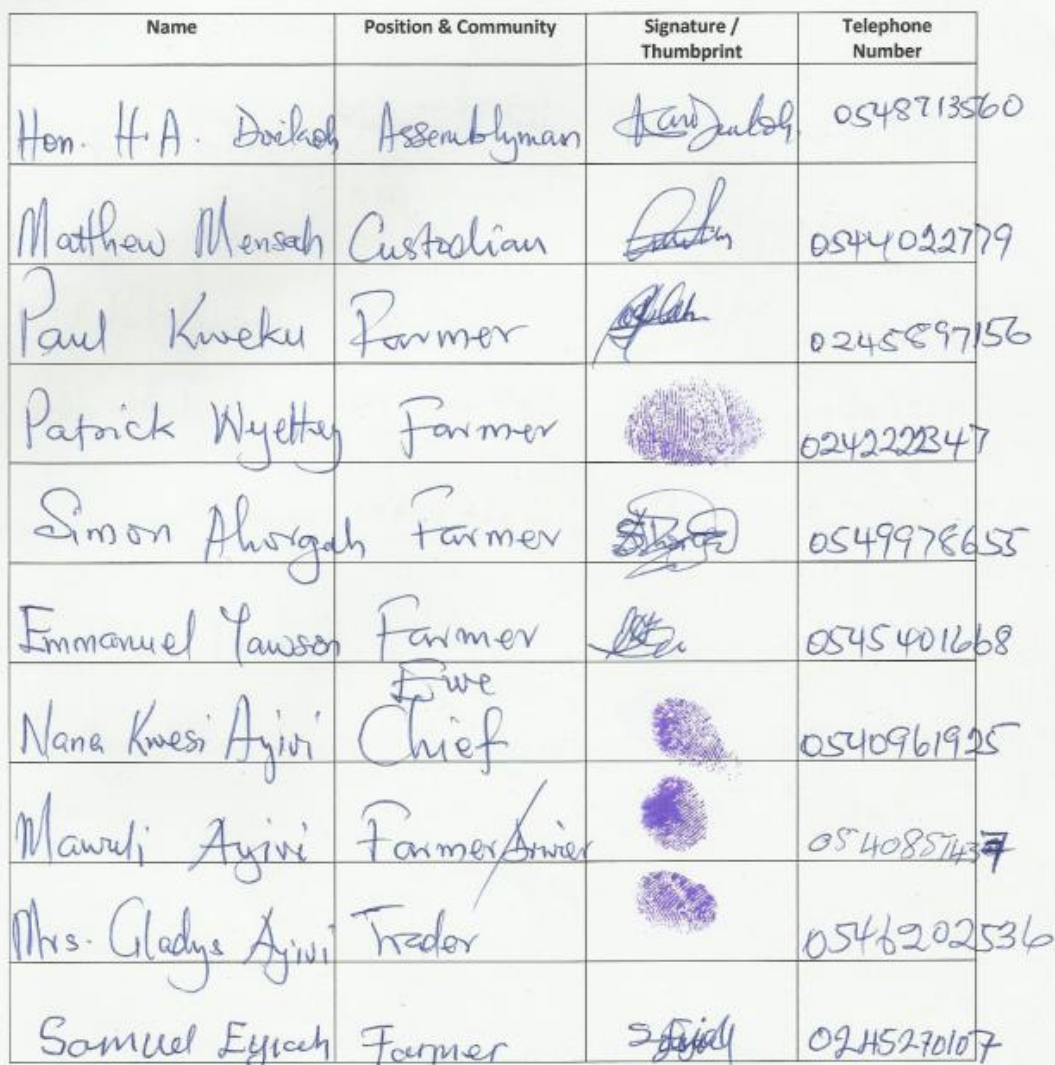 Name Position & Community Signature / Thumbprint Telephone Number
Hon. H.A. Assemblyman 0548713560
Matthew Mensah Custodian 0544022779
Paul Kweku Farmer 0245897156
Patrick Wyettey Farmer 024222347
Simon Ahorgah Farmer 0549978655
Emmanuel Yawson Farmer 0545401668
Nana Kwesi Ayivi Ewe Chief 0540961925
Mawuli Ayivi Farmer/ 
Mrs. Gladys Ayivi Trader 0546202536
Samuel Eyiah Farmer 0245270107